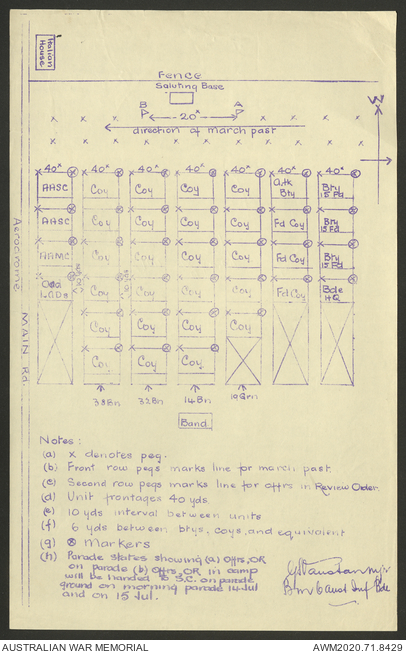 Italian
House
Fence
Saluting Base
B A
20ˣ
direction of march past
W
40ˣ 40ˣ 40ˣ 40ˣ 40ˣ 40ˣ 40ˣ
AASC Coy Coy Coy Coy A.tk Bty Bty 15 Fd
AASC Coy Coy Coy Coy Fd Coy Bty 15 Fd
AAMC Coy Coy Coy Coy Fd Coy Bty 15 Fd
Ord LADs Coy Coy Coy Coy Fd Coy Bde HQ
Coy Coy Coy Coy
Coy Coy Coy
38Bn 32Bn 14Bn 19Grn
Band
Aerodrome
MAIN Rd.
Notes:
(a) x denotes peg.
(b) Front row pegs marks line for march past.
(c) Second row pegs marks line for offrs in Review Order.
(d) Unit frontages 40 yds.
(e) 10 yds interval between units
(f) 6 yds between btys, coys, and equivalent
(g) ⊗ Markers
(h) Parade states showing (a) Offrs, OR
on parade (b) Offrs, OR in camp
will be handed to S.C. on parade
ground on morning parade 14 Jul
and on 15 Jul.
Maj
Bm 6 Aust Inf Bde
AUSTRALIAN WAR MEMORIAL
AWM2020.71.8429